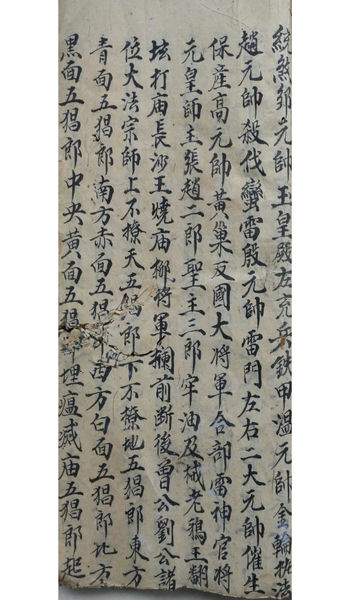 統煞鄧元帥玉皇殿左充兵鉄甲温元帥金輪执法
趙元帥殺伐蠻雷殷元帥雷門左右二大元帥催生
保産高元帥黃巢反國大将軍合部雷神官将
元皇師主張趙二郎聖主三郎牢油及械老鴉王翻
坛打庙長沙王燒庙柳将軍攔前断後曾公劉公諸
位大法宗師上不撩天五猖郎下不撩地五猖郎東方
青面五猖郎南方赤面五猖西方白面五猖郎北方
黑面五猖郎中央黃面五猖埋瘟滅庙五猖郎起